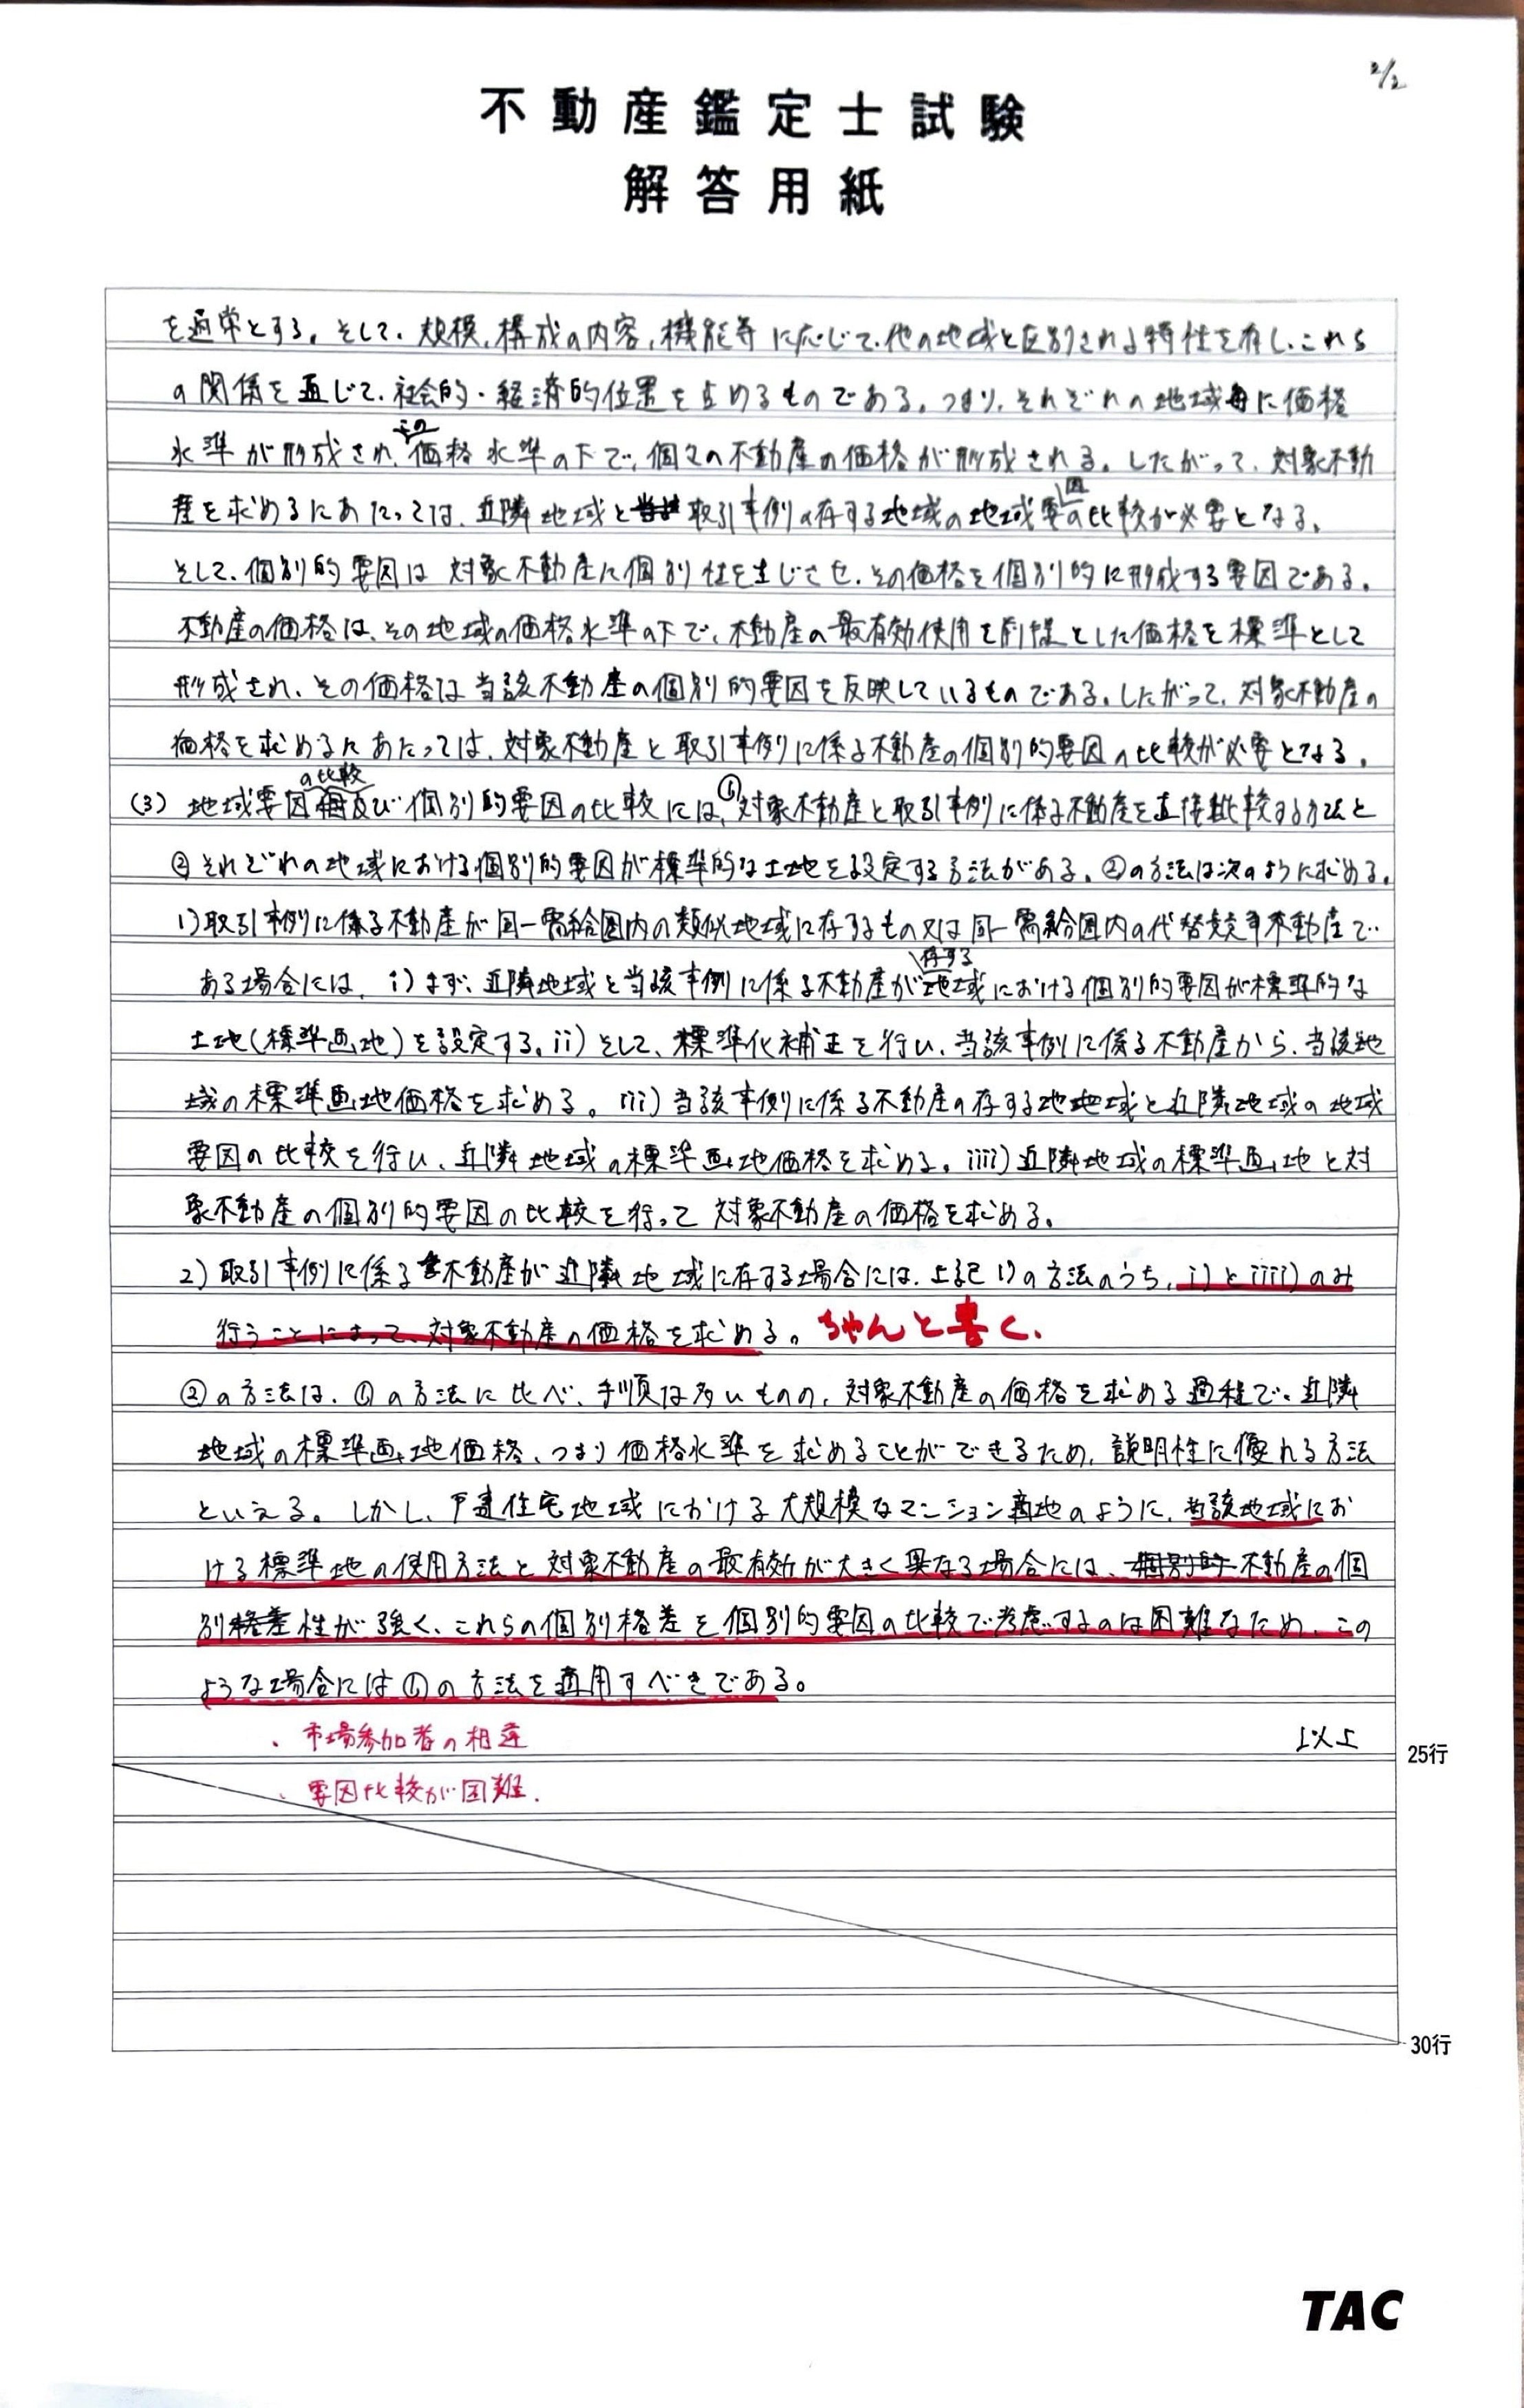 2/2
不動産鑑定士試験
解答用紙
を通常とする。そして、規模、構成の内容、機能等に応じて、他の地域と区別される特性を有し、これら
の関係を通じて、社会的・経済的位置を占めるものである。つまり、それぞれの地域毎に価格
水準が形成され、この価格水準の下で、個々の不動産の価格が形成される。したがって、対象不動
産を求めるにあたっては、近隣地域と取引事例の存する地域の地域要因の比較が必要となる。
そして、個別的要因は対象不動産に個別性を生じさせ、その価格を個別的に形成する要因である。
不動産の価格は、その地域の価格水準の下で、不動産の最有効使用を前提とした価格を標準として
形成され、その価格は当該不動産の個別的要因を反映しているものである。したがって、対象不動産の
価格を求めるにあたっては、対象不動産と取引事例に係る不動産の個別的要因の比較が必要となる。
(3) 地域要因の比較及び個別的要因の比較には、①対象不動産と取引事例に係る不動産を直接比較する方法と
②それぞれの地域における個別的要因が標準的な土地を設定する方法がある。②の方法は次のように求める。
1)取引事例に係る不動産が同一需給圏内の類似地域に存するもの又は同一需給圏内の代替競争不動産で
ある場合には、i)まず、近隣地域と当該事例に係る不動産が存する地域における個別的要因が標準的な
土地(標準画地)を設定する。ii)そして、標準化補正を行い、当該事例に係る不動産から、当該地
域の標準画地価格を求める。iii)当該事例に係る不動産の存する地地域と近隣地域の地域
要因の比較を行い、近隣地域の標準画地価格を求める。iiii)近隣地域の標準画地と対
象不動産の個別的要因の比較を行って対象不動産の価格を求める。
2)取引事例に係る不動産が近隣地域に存する場合には、上記1)の方法のうち、i)とiiii)のみ
行うことによって、対象不動産の価格を求める。ちゃんと書く、
②の方法は、①の方法に比べ、手順は多いものの、対象不動産の価格を求める過程で、近隣
地域の標準画地価格、つまり価格水準を求めることができるため、説明性に優れる方法
といえる。しかし、戸建住宅地域における大規模なマンション適地のように、当該地域にお
ける標準地の使用方法と対象不動産の最有効が大きく異なる場合には、個別的不動産の個
別格差性が強く、これらの個別格差を個別的要因の比較で考慮するのは困難なため、この
ような場合には①の方法を適用すべきである。
、市場参加者の相違
以上
25行
、要因比較が困難.
30行
TAC